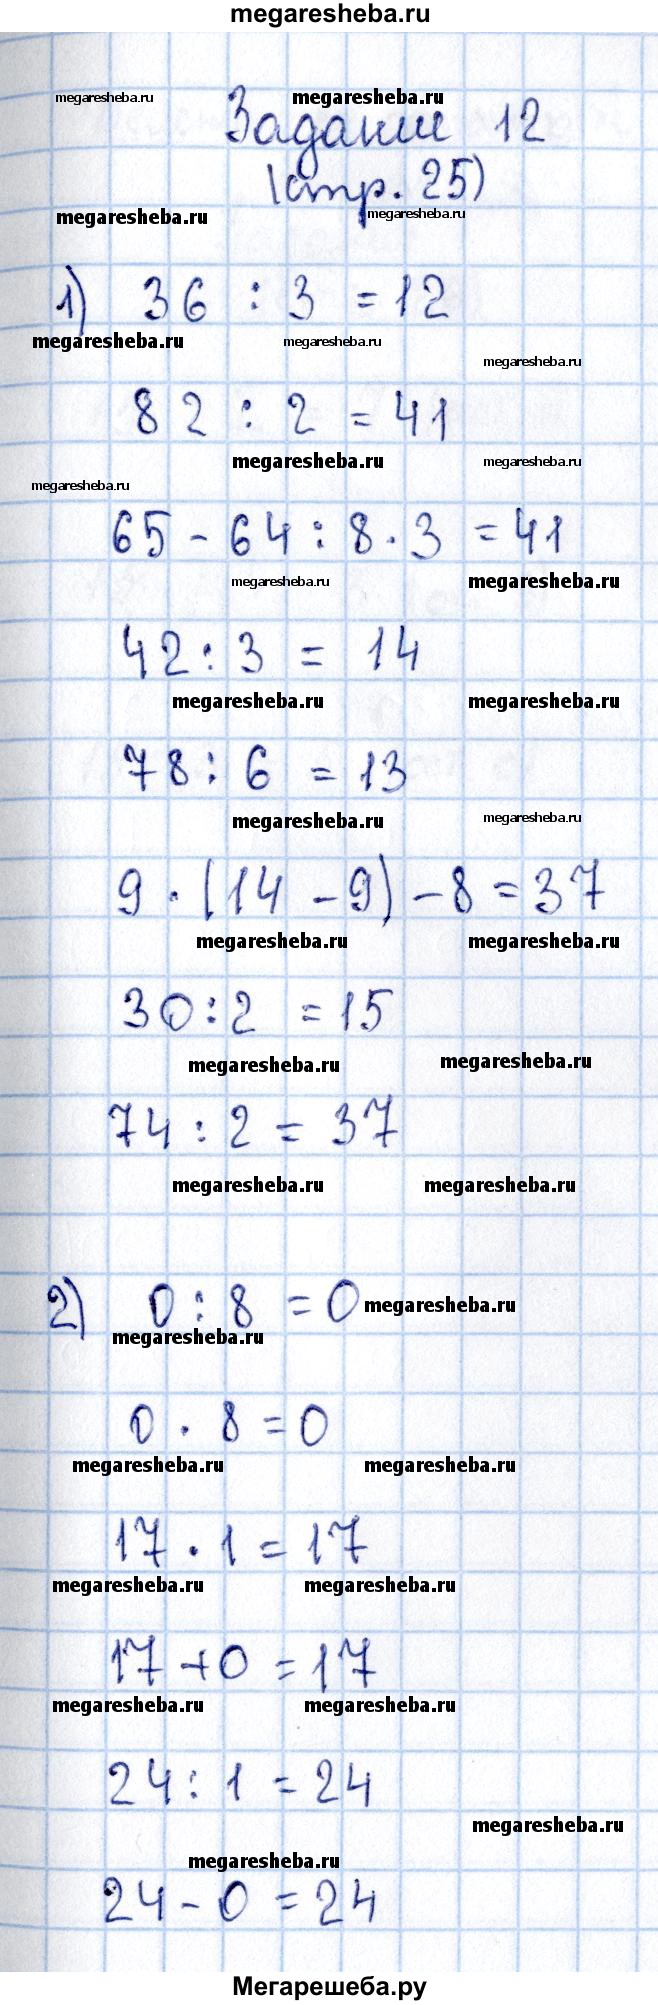 megaresheba.ru
megaresheba.ru megaresheba.ru
Задание 12
(стр. 25)
megaresheba.ru megaresheba.ru
1) 36 : 3 = 12
megaresheba.ru megaresheba.ru
megaresheba.ru
82 : 2 = 41
megaresheba.ru megaresheba.ru
megaresheba.ru
65 - 64 : 8 · 3 = 41
megaresheba.ru megaresheba.ru
42 : 3 = 14
megaresheba.ru megaresheba.ru
78 : 6 = 13
megaresheba.ru megaresheba.ru
9 · (14 - 9) - 8 = 37
megaresheba.ru megaresheba.ru
30 : 2 = 15
megaresheba.ru megaresheba.ru
74 : 2 = 37
megaresheba.ru megaresheba.ru
2) 0 : 8 = 0 megaresheba.ru
megaresheba.ru
0 · 8 = 0
megaresheba.ru megaresheba.ru
17 · 1 = 17
megaresheba.ru megaresheba.ru
17 + 0 = 17
megaresheba.ru megaresheba.ru
24 : 1 = 24
megaresheba.ru
megaresheba.ru
24 - 0 = 24
Мегарешеба.ру